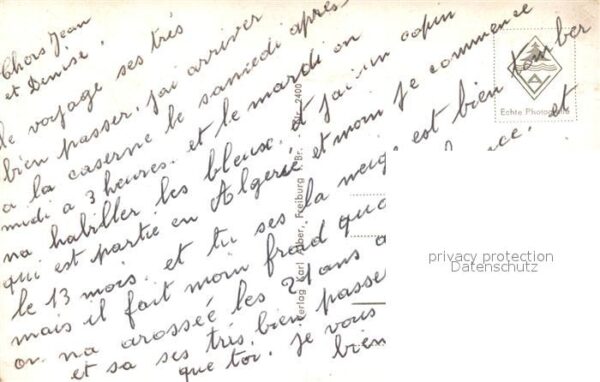 Chers Jean
et Denise,
le voyage ses très
bien passer, j'ai arriver
a la caserne le samedi après-
midi a 3 heures. et le mardi on
na habiller les bleus. et j'ai un copin
qui est partie en Algerie et moi je commence
le 13 mois. et tu ses la neige est bien tomber
mais il fait moin froid et
on na arossée les 21 ans
et sa ses très bien passe
que toi. je vous
bien
Verlag Karl Alber, Freiburg i. Br. Nr. 2400
Echte Photographie
privacy protection
Datenschutz